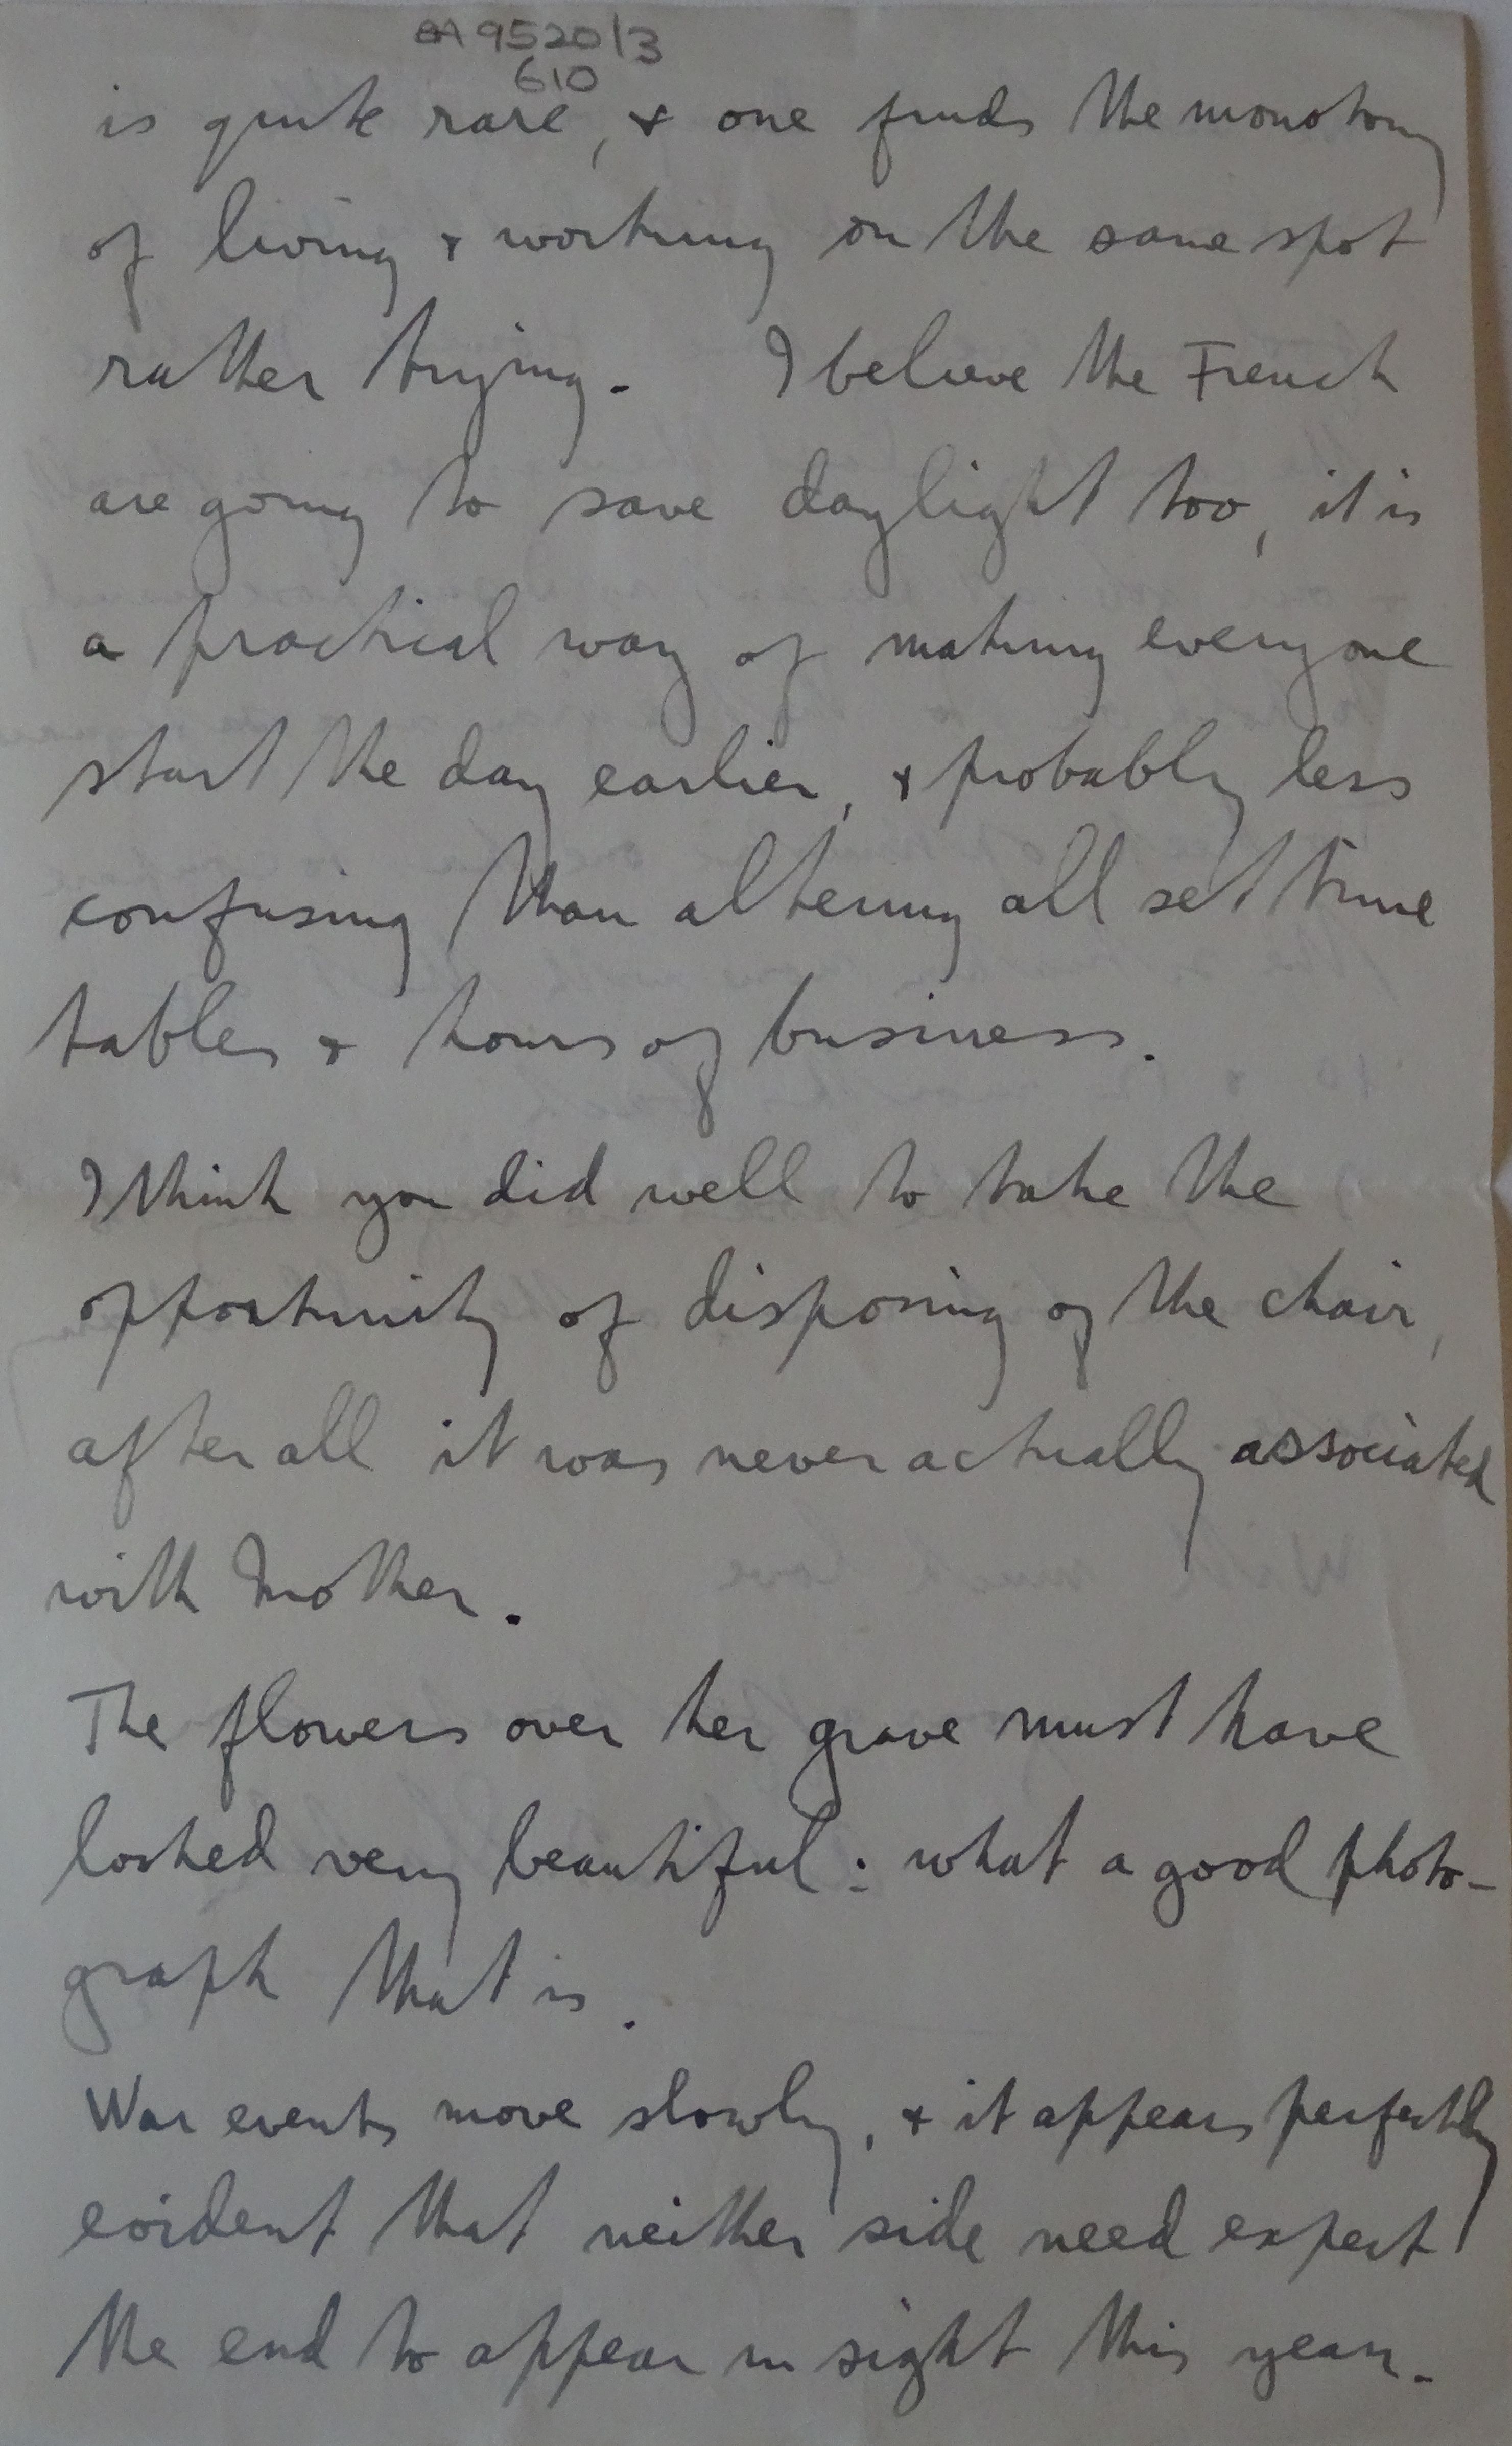 EA 9520/3
610
is quite rare, & one finds the monotony
of living & working on the same spot
rather trying. I believe the French
are going to save daylight too, it is
a practical way of making everyone
start the day earlier, & probably less
confusing than altering all set time
tables & hours of business.
I think you did well to take the
opportunity of disposing of the chair,
after all it was never actually associated
with Mother.
The flowers over her grave must have
looked very beautiful: what a good photo-
graph that is.
War events move slowly, & it appears perfectly
evident that neither side need expect
the end to appear in sight this year.